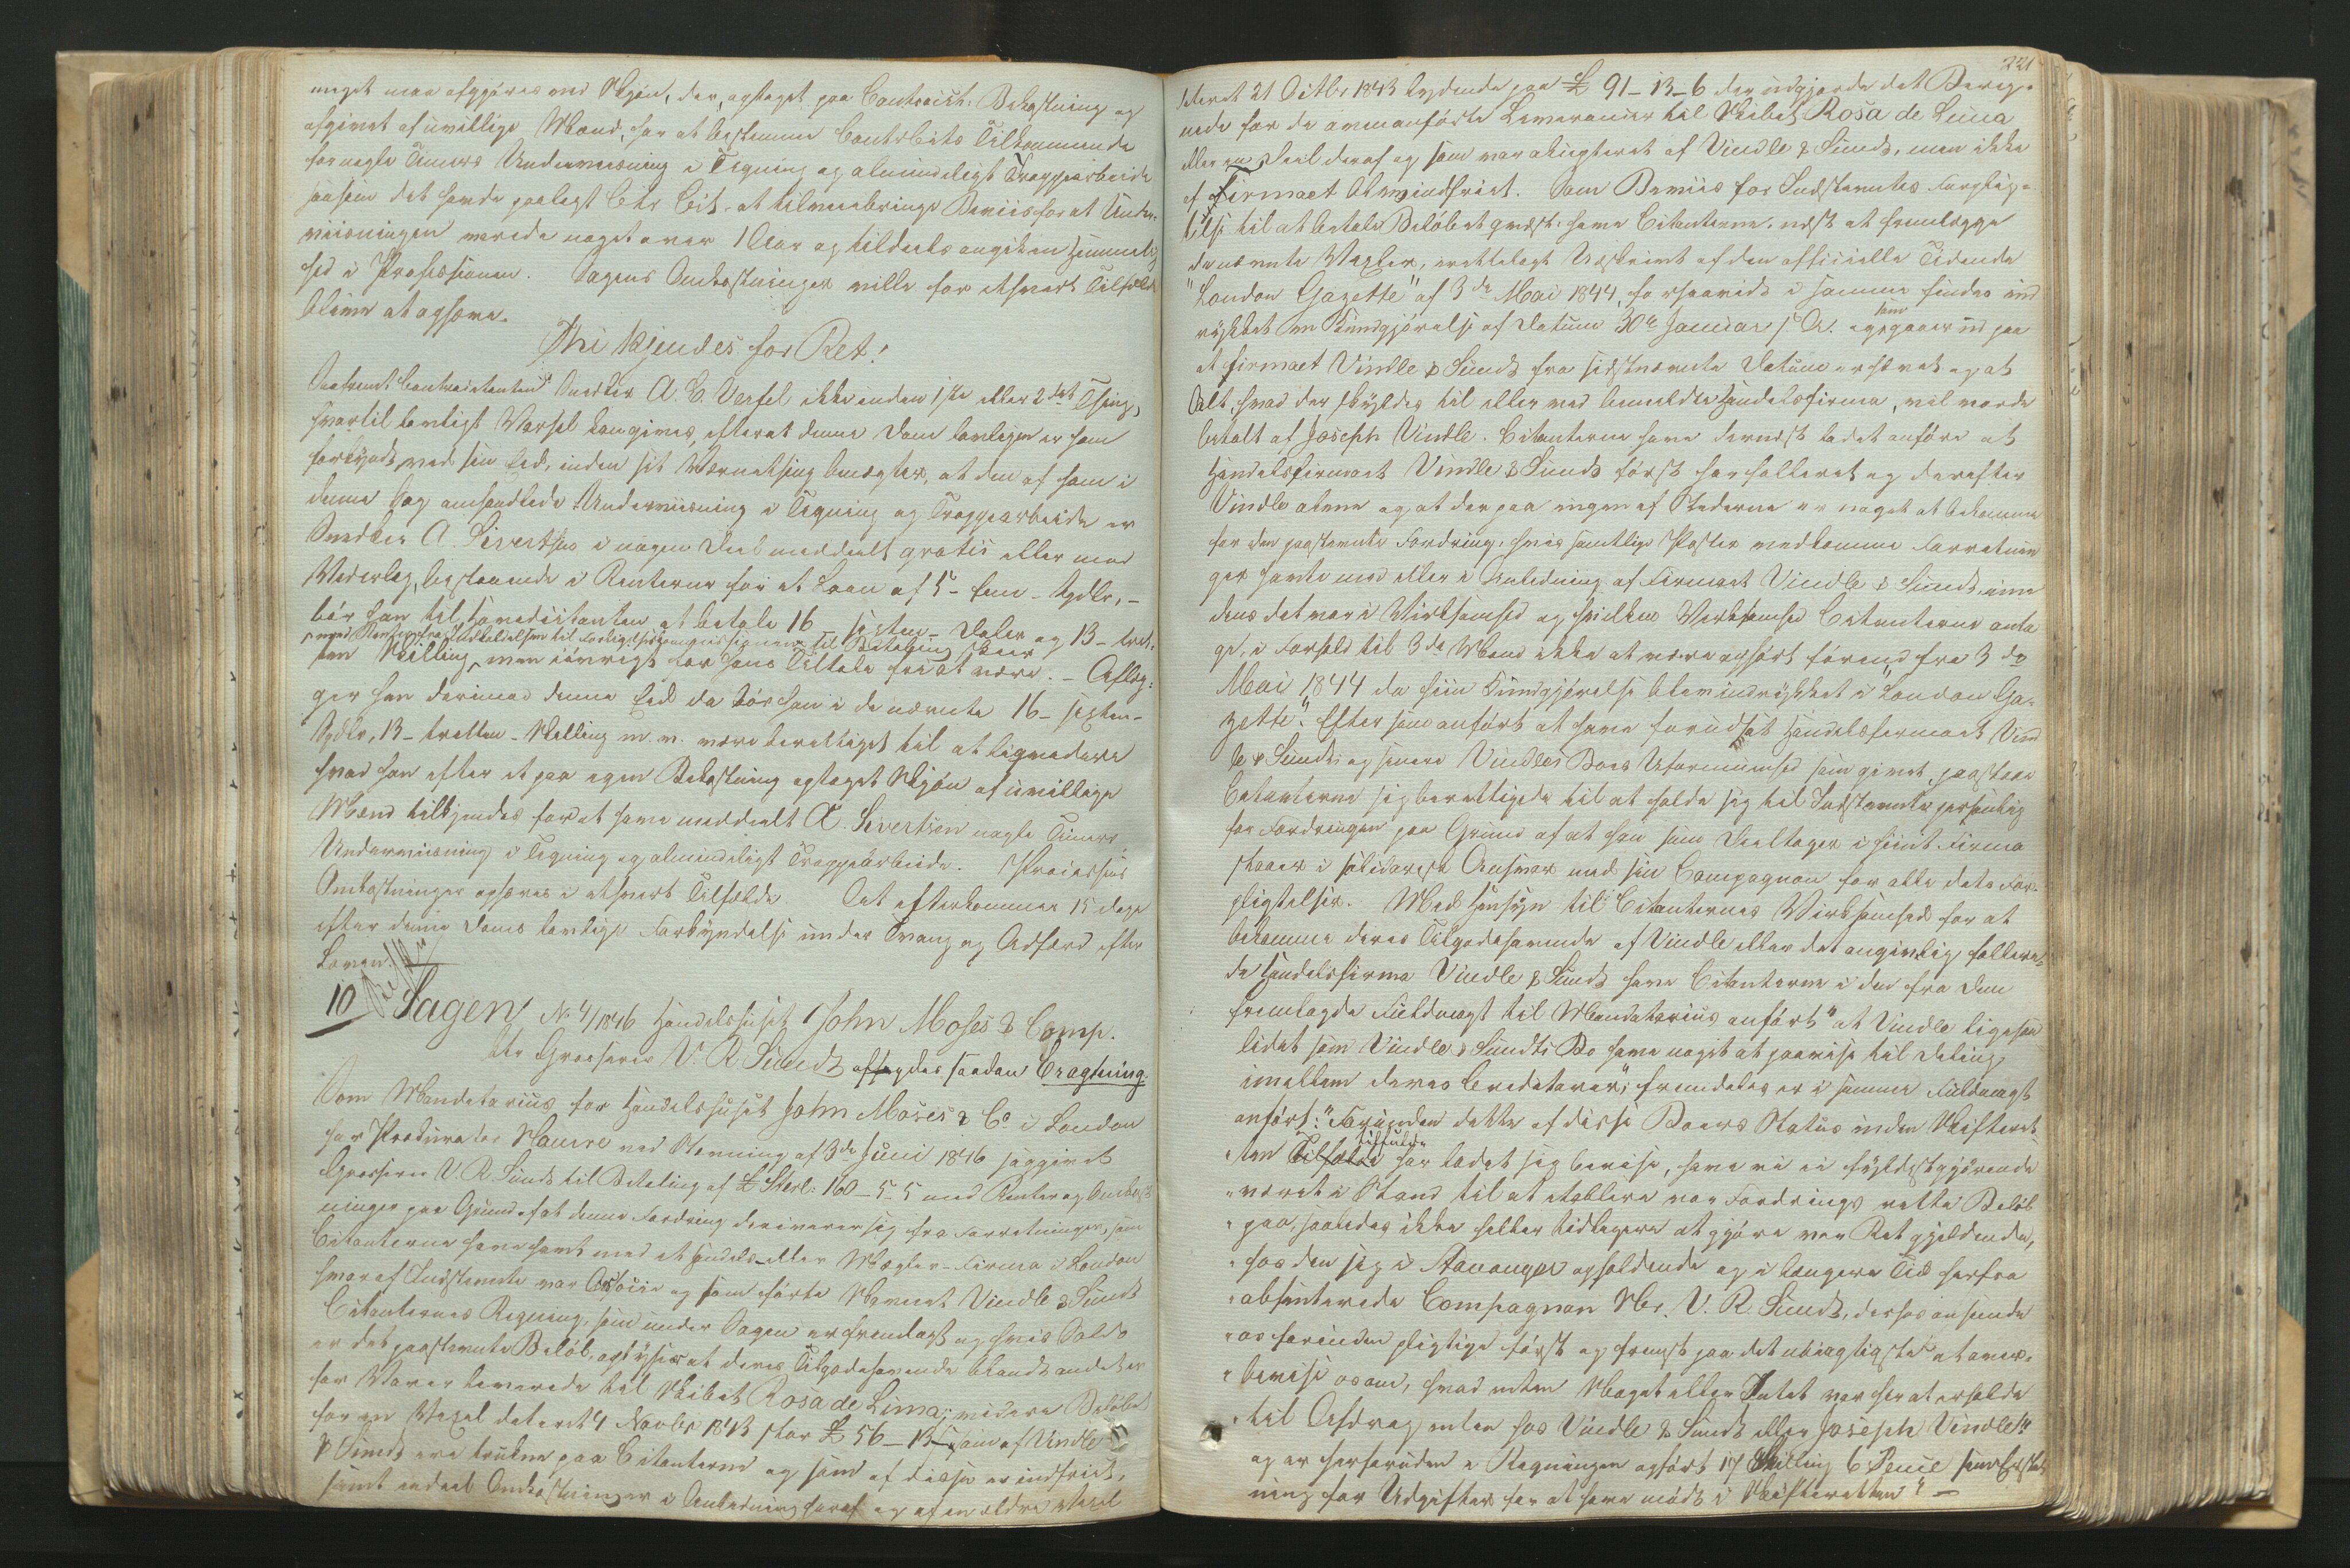 meget maa afgjøres ved Skjøn, der, optaget paa Contracit: Bekostning og
afgivet af uvillige Mænd, har at bestemme Contrcits Tilkommende
for nogle Timers Underviisning i Tegning og almindeligt Trappearbeide
saasom det havde paalagt Ctr Cit. at tilveiebringe Beviis for at Under-
viisningen varede noget over 1 Aar og tildeels angik en Hemmelig
hed i Professionen. Sagens Omkostninger ville for ethvert Tilfælde
blive at ophæve.
Thi kjendes for Ret!
Saafremt Contracitanten Snedker A. C. Verfel ikke inden 1ste eller 2det Thing,
hvortil lovligt Varsel kan gives, efterat denne Dom lovligen er ham
forkyndt, ved sin Eed, inden sit Værnething benægter, at den af ham i
denne Sag omhandlede Underviisning i Tegning og Trappearbeide er
Snedker A. Sivertsen i nogen Deel meddeelt gratis eller mod
Vederlag, bestaaende i Renterne for et Laan af 5 - fem - Spdlr, -
bør han til Hovedcitanten at betale 16 - sexten - Daler og 13 - tret-
med Renter fra Indkaldelsen til Forligelsescommissionen til Betaling skeer
ten Skilling, men iøvrigt for hans Tiltale fri at være. - Aflæg-
ger han derimod denne Eed da bør han i de nævnte 16 - sexten -
Spdlr, 13 - tretten - Skilling m. v. være berettiget til at liqvidere
hvad han efter et paa egen Bekostning optaget Skjøn af uvillige
Mænd tilkjendes for at have meddeelt A. Sivertsen nogle Timers
Underviisning i Tegning og almindeligt Trappearbeide. Processens
Omkostninger ophæves i ethvert Tilfælde. Det efterkommes 15 Dage
efter denne Doms lovlige Forkyndelse under Tvang og Adfærd efter
Loven.
10 Sagen No 4/1846 Handelshuset John Moses & Comp.
ctr Grosserer V. R. Sundt afsagdes saadan Eragtning.
Som Mandatarius for Handelshuset John Moses & Co i London
har Procurator Maurer ved Stevning af 3de Juni 1846 sagsøgt
Grosserer V. R. Sundt til Betaling af £ Sterl: 160 - 5 - 5 med Renter og Omkost-
ninger paa Grund af at denne Fordring deriverer sig fra Forretninger, som
Citanterne have havt med et Handels- eller Mægler-Firma i London
hvoraf Indstevnte var Associe og som førte Navnet Vindle & Sundt
Citanternes Regning, som under Sagen er fremlagt og hvis Saldo
er det paastevnte Beløb, oplyser at deres Tilgodehavende blandt andet er
for Varer leverede til Skibet Rosa de Lima; videre Beløbet
for en Vexel dateret 4 Novbr 1843 stor £ 56 - 13 - som af Vindle
& Sundt ere trukne paa Citanterne og som af disse er indfriet,
samt endeel Omkostninger i Anledning heraf og af en ældre Vexel
221
dateret 21 Octbr 1843 lydende paa £ 91 - 13 - 6 der udgjorde det Bereg-
nede for de ovenanførte Leverancer til Skibet Rosa de Lima
eller en Deel deraf og som var accepteret af Vindle & Sundt, men ikke
af Firmaet blev indfriet. Som Beviis for Indstevntes Forplig-
telse til at betale Beløbet qvæst: have Citanterne, næst at fremlægge
de nævnte Vexler, irettelagt Udskrivt af den officielle Tidende
"London Gazette" af 3de Mai 1844, forsaavidt i samme findes ind
rykket en Kundgjørelse af Datum 30te Januar s. A. som gaaer ud paa
at Firmaet Vindle & Sundt fra sidstnævnte Datum er hævet og at
Alt, hvad der skyldes til eller ved bemeldte Handelsfirma, vil vorde
betalt af Joseph Vindle. Citanterne have dernæst ladet anføre at
Handelsfirmaet Vindle & Sundt først har falleret og derefter
Vindle alene og at der paa ingen af Stederne er noget at bekomme
for den paastevnte Fordring, hvis samtlige Poster vedkomme Forretnin
ger havte med eller i Anledning af Firmaet Vindle & Sundt, ime
dens det var i Virksomhed og hvilken Virksomhed Citanterne anta
ge, i Forhold til 3die Mand ikke at være ophørt førend fra 3die
Mai 1844 da hiin Kundgjørelse blev indrykket i "London Ga-
zette". Efter saa anført at have forudsat Handelsfirmaet Vind
le & Sundts og senere Vindles Boes Uformuenhed som givet, paastaae
Citanterne sig berettigede til at holde sig til Indstevnte personlig
for Fordringen paa Grund af at han som Deeltager i hiint Firma
staaer i solidarisk Ansvar med sin Compagnon for alle dets For-
pligtelser. Med Hensyn til Citanternes Virksomhed for at
bekomme deres Tilgodehavende af Vindle eller det angivelig fallere-
de Handelsfirma Vindle & Sundt have Citanterne i den fra dem
fremlagde Fuldmagt til Mandatarius anført "at Vindle ligesaa
lidet som Vindle & Sundts Bo have noget at paavise til Deling
imellem deres Creditorer"; fremdeles er i samme Fuldmagt
anført: "Forinden dette af disse Boers Status inden Skifteret-
"ten tilfulde har ladet sig bevise, have vi ei fyldestgjørende
"været i Stand til at etablere vor Fordrings rette Beløb
"paa, saaledes ikke heller tidligere at gjøre vor Ret gjeldende,
"hos den sig i Stavanger opholdende og i længere Tid herfra
"absenterede Compagnon Mr. V. R. Sundt, derhos ansende
"os forinden pligtige først og fremst paa det nøiagtigste at over-
"bevise os om, hvad enten Noget eller Intet var her at erholde
"til Afdrag enten hos Vindle & Sundt eller Joseph Vindle"
og er herforuden i Regningen opført 17 Skilling 6 Pence som Erstat
ning for Udgifter for at have mødt i Skifteretten" -